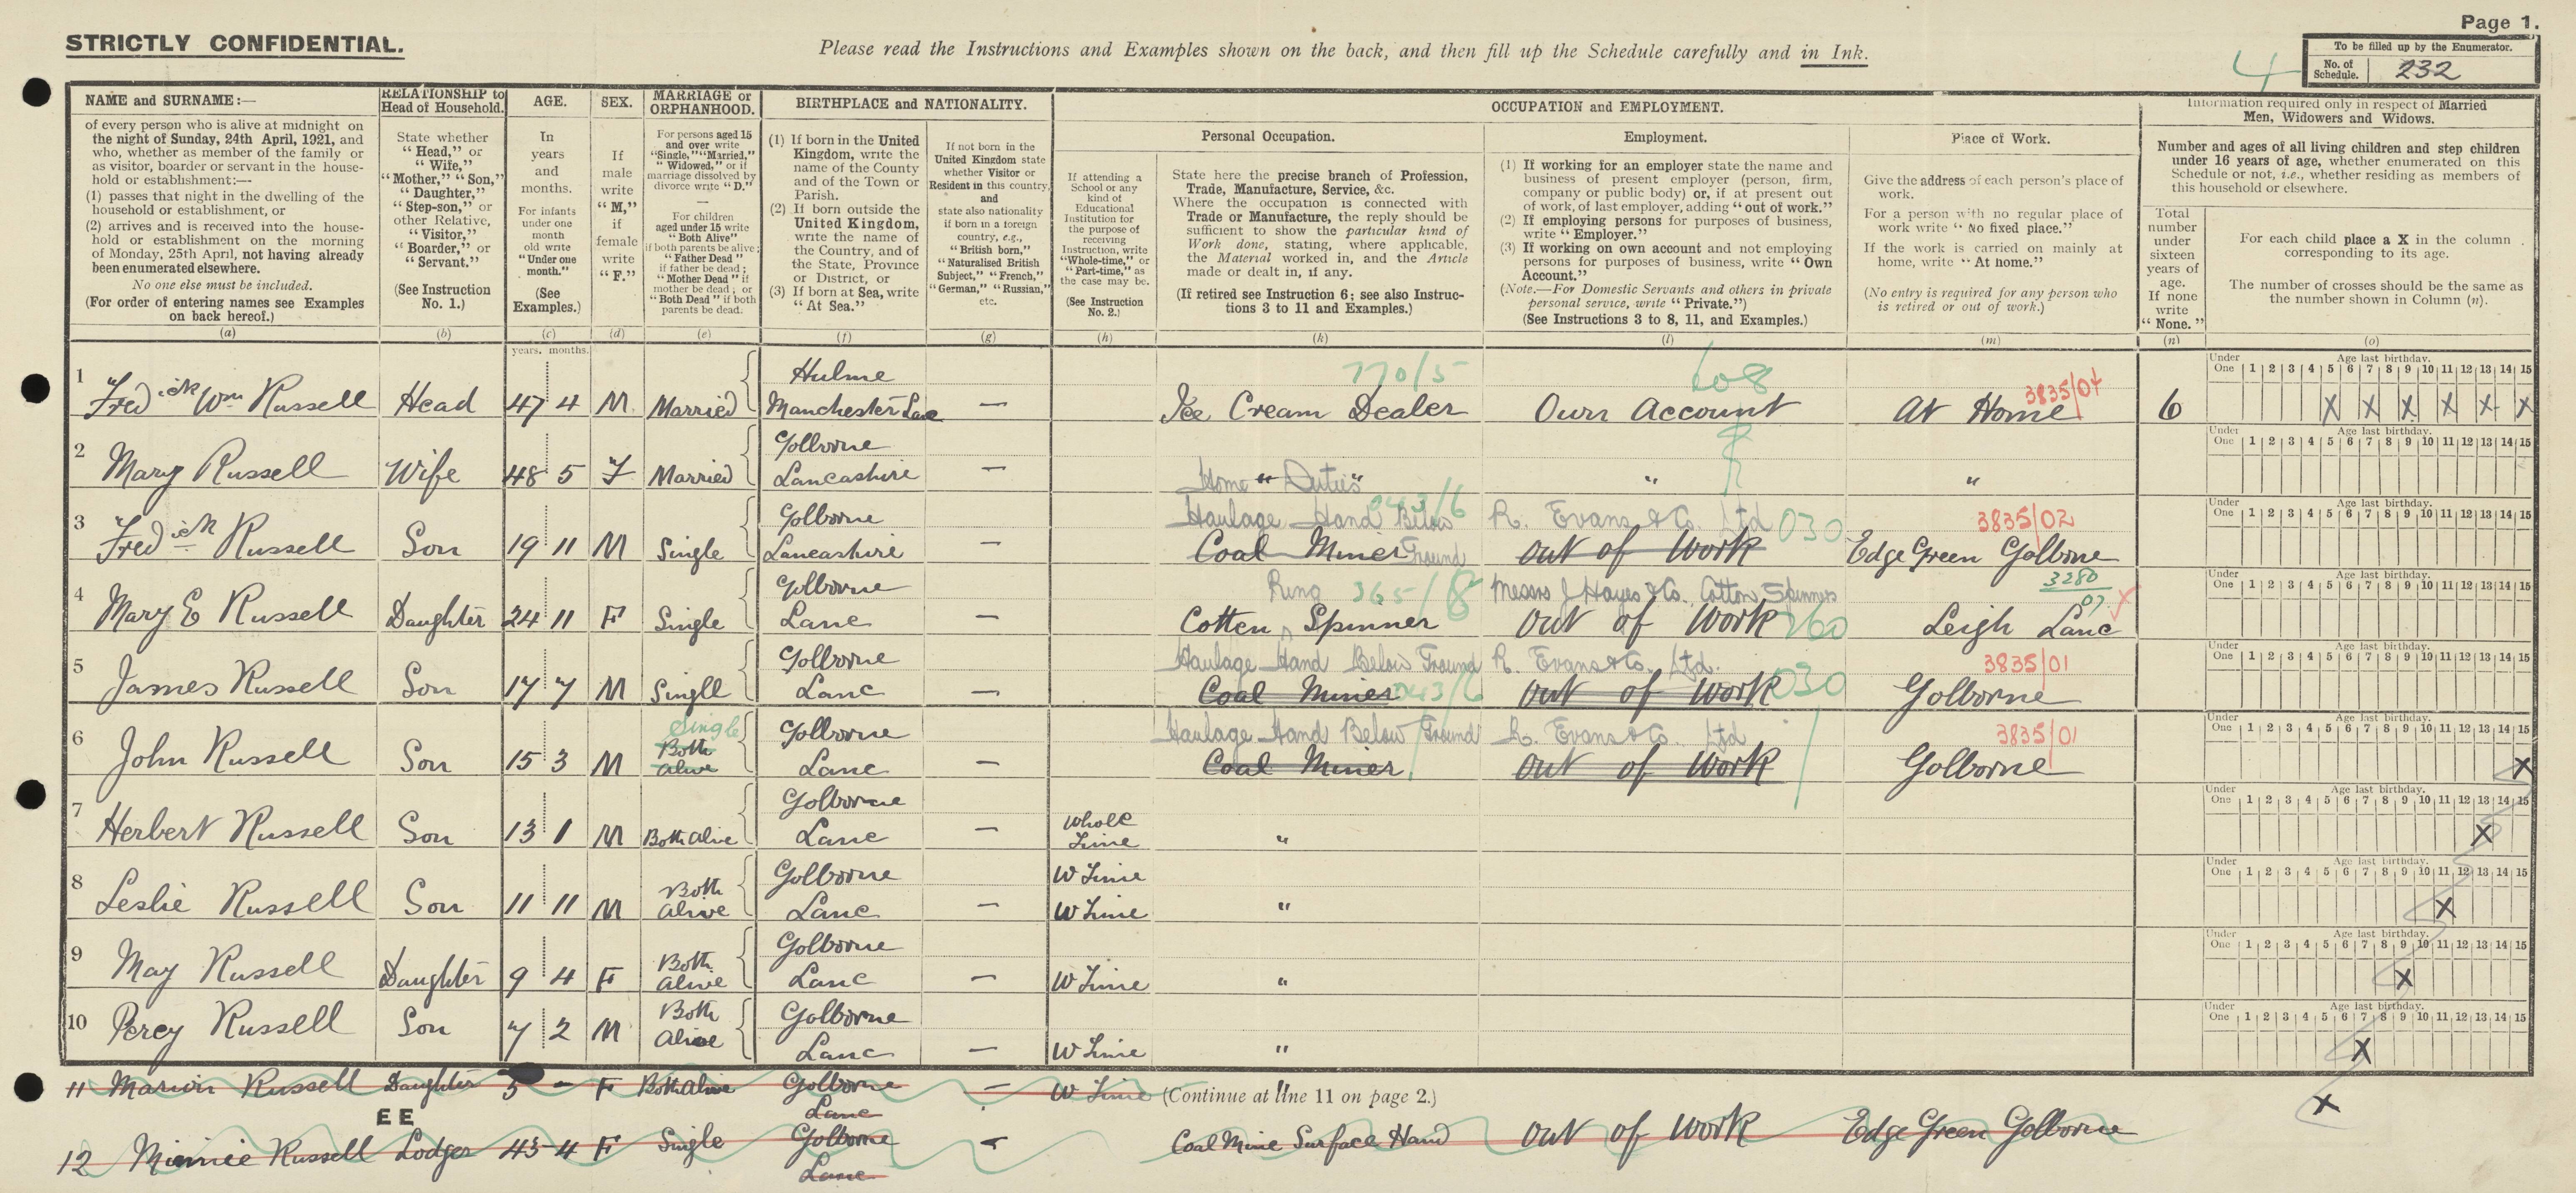 Page 1.
STRICTLY CONFIDENTIAL.
Please read the Instructions and Examples shown on the back, and then fill up the Schedule carefully and in Ink.
4
To be filled up by the Enumerator.
No. of Schedule. 232
NAME and SURNAME:—
of every person who is alive at midnight on
the night of Sunday, 24th April, 1921, and
who, whether as member of the family or
as visitor, boarder or servant in the house-
hold or establishment:—
(1) passes that night in the dwelling of the
household or establishment, or
(2) arrives and is received into the house-
hold or establishment on the morning
of Monday, 25th April, not having already
been enumerated elsewhere.
No one else must be included.
(For order of entering names see Examples
on back hereof.)
(a)
RELATIONSHIP to
Head of Household.
State whether
"Head," or
"Wife,"
"Mother," "Son,"
"Daughter,"
"Step-son," or
other Relative,
"Visitor,"
"Boarder," or
"Servant."
(See Instruction
No. 1.)
(b)
AGE.
In
years
and
months.
For infants
under one
month
old write
"Under one
month."
(See
Examples.)
(c)
SEX.
If
male
write
"M,"
if
female
write
"F."
(d)
MARRIAGE or
ORPHANHOOD.
For persons aged 15
and over write
"Single," "Married,"
"Widowed," or if
marriage dissolved by
divorce write "D."
—
For children
aged under 15 write
"Both Alive"
if both parents be alive;
"Father Dead"
if father be dead;
"Mother Dead" if
mother be dead; or
"Both Dead" if both
parents be dead.
(e)
BIRTHPLACE and NATIONALITY.
(1) If born in the United
Kingdom, write the
name of the County
and of the Town or
Parish.
(2) If born outside the
United Kingdom,
write the name of
the Country, and of
the State, Province
or District, or
(3) If born at Sea, write
"At Sea."
(f)
If not born in the
United Kingdom state
whether Visitor or
Resident in this country,
and
state also nationality
if born in a foreign
country, e.g.,
"British born,"
"Naturalised British
Subject," "French,"
"German," "Russian,"
etc.
(g)
OCCUPATION and EMPLOYMENT.
If attending a
School or any
kind of
Educational
Institution for
the purpose of
receiving
Instruction, write
"Whole-time," or
"Part-time," as
the case may be.
(See Instruction
No. 2.)
(h)
Personal Occupation.
State here the precise branch of Profession,
Trade, Manufacture, Service, &c.
Where the occupation is connected with
Trade or Manufacture, the reply should be
sufficient to show the particular kind of
Work done, stating, where applicable,
the Material worked in, and the Article
made or dealt in, if any.
(If retired see Instruction 6; see also Instruc-
tions 3 to 11 and Examples.)
(k)
Employment.
(1) If working for an employer state the name and
business of present employer (person, firm,
company or public body) or, if at present out
of work, of last employer, adding "out of work."
(2) If employing persons for purposes of business,
write "Employer."
(3) If working on own account and not employing
persons for purposes of business, write "Own
Account."
(Note.—For Domestic Servants and others in private
personal service, write "Private.")
(See Instructions 3 to 8, 11, and Examples.)
(l)
Place of Work.
Give the address of each person's place of
work.
For a person with no regular place of
work write "No fixed place."
If the work is carried on mainly at
home, write "At home."
(No entry is required for any person who
is retired or out of work.)
(m)
Information required only in respect of Married
Men, Widowers and Widows.
Number and ages of all living children and step children
under 16 years of age, whether enumerated on this
Schedule or not, i.e., whether residing as members of
this household or elsewhere.
Total
number
under
sixteen
years of
age.
If none
write
"None."
(n)
For each child place a X in the column
corresponding to its age.
The number of crosses should be the same as
the number shown in Column (n).
(o)
years. months.
Under One Age last birthday.
1 2 3 4 5 6 7 8 9 10 11 12 13 14 15
Hulme 770/5 608 3835/04
1 Fredick Wm Russell Head 47 4 M Married Manchester Lanc — Ice Cream Dealer Own Account At Home 6 X X X X X X
Under One Age last birthday.
1 2 3 4 5 6 7 8 9 10 11 12 13 14 15
Golborne
2 Mary Russell Wife 48 5 F Married Lancashire — Home Duties " "
Under One Age last birthday.
1 2 3 4 5 6 7 8 9 10 11 12 13 14 15
Golborne Haulage Hand Below 043/6 R. Evans & Co. Ltd 030 3835/02
3 Fredick Russell Son 19 11 M Single Lancashire — Coal Miner Ground Out of Work Edge Green Golborne
Under One Age last birthday.
1 2 3 4 5 6 7 8 9 10 11 12 13 14 15
Golborne Ring 365/8 Messrs J Hayes & Co. Cotton Spinners 3280/07
4 Mary E Russell Daughter 24 11 F Single Lanc — Cotten Spinner Out of Work 260 Leigh Lanc
Under One Age last birthday.
1 2 3 4 5 6 7 8 9 10 11 12 13 14 15
Golborne Haulage Hand Below Ground R. Evans & Co. Ltd. 3835/01
5 James Russell Son 17 7 M Single Lanc — Coal Miner 043/6 Out of Work 030 Golborne
Under One Age last birthday.
1 2 3 4 5 6 7 8 9 10 11 12 13 14 15
Single Golborne Haulage Hand Below Ground R. Evans & Co. Ltd 3835/01
6 John Russell Son 15 3 M Both Alive Lanc — Coal Miner Out of Work Golborne X
Under One Age last birthday.
1 2 3 4 5 6 7 8 9 10 11 12 13 14 15
Golborne Whole
7 Herbert Russell Son 13 1 M Both Alive Lanc — Time " X
Under One Age last birthday.
1 2 3 4 5 6 7 8 9 10 11 12 13 14 15
Both Golborne W Time
8 Leslie Russell Son 11 11 M Alive Lanc — W Time " X
Under One Age last birthday.
1 2 3 4 5 6 7 8 9 10 11 12 13 14 15
Both Golborne
9 May Russell Daughter 9 4 F Alive Lanc — W Time " X
Under One Age last birthday.
1 2 3 4 5 6 7 8 9 10 11 12 13 14 15
Both Golborne
10 Percy Russell Son 7 2 M Alive Lanc — W Time " X
11 Marion Russell Daughter 5 – F Both Alive Golborne Lanc — W Time " X
(Continue at line 11 on page 2.)
EE
12 Minnie Russell Lodger 43 4 F Single Golborne Lanc – Coal Mine Surface Hand Out of Work Edge Green Golborne